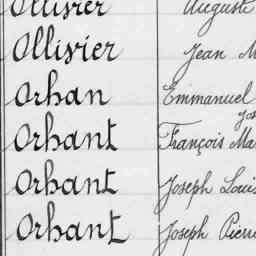 Ollivier Auguste
Ollivier Jean M
Orhan Emmanuel
Jos
Orhant François Ma
Orhant Joseph Louis
Orhant Joseph Pierre